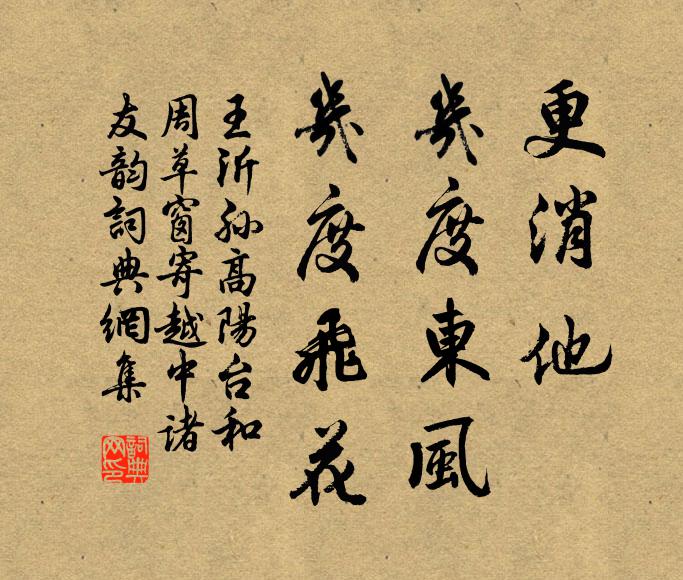 更消他
幾度東風
幾度飛花
王沂孙高陽台和
周草窗寄越中诸
友韵詞典網集
詞典
网印